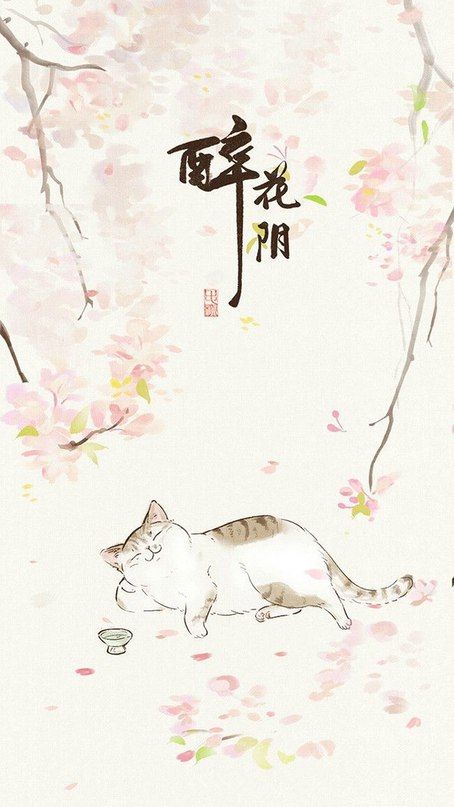 醉花阴